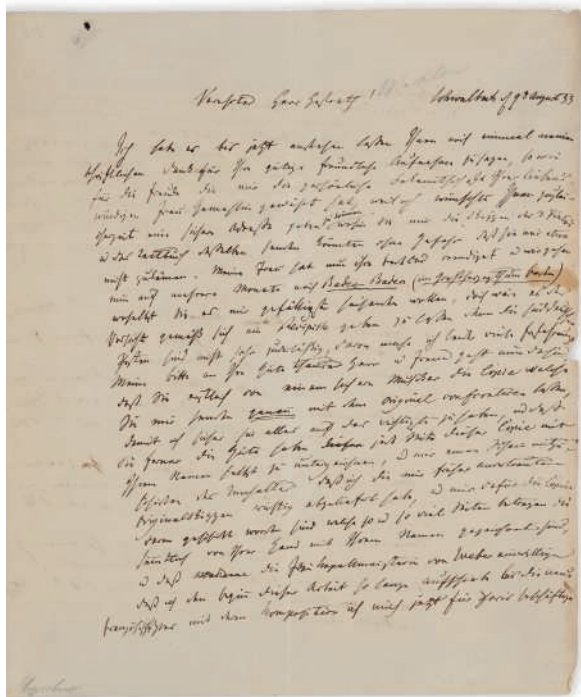 Verehrter Herr Hofrath! Schwalbach d 9t August 33
Ich habe es bis jetzt anstehen lassen Ihnen noch einmal meinen
schriftlichen Dank für Ihre gütige freundliche Aufnahme zu sagen, so wie
für die Freude die mir die persönliche Bekanntschaft Ihrer liebens-
würdigen Frau Gemahlin gewährt hat, weil ich wünschte Ihnen zugleich
eine sichere Adresse geben zu können, wohin Sie mir die Skizzen der 3 Pintos
u das Textbuch desselben senden könnten ohne Gefahr daß sie mir etwa
nicht zukämen. Meine Frau hat nun ihre Badekur beendigt u wir gehen
nun auf mehrere Monate nach Baden Baden (im Großherzogthum Baden)
wohin Sie es mir gefälligst senden wollen, doch wäre es der
Vorsicht gemäß sich ein Recipisse geben zu lassen denn die süddeutschen
Posten sind nicht sehr zuverlässig, davon mache ich leider viele Erfahrung.
Meine Bitte an Ihre Güte theurer Herr u Freund geht nun dahin,
daß Sie erstlich von einem sichern Musiker die Copie welche
Sie mir senden genau mit dem Original confrontiren lassen,
damit ich sicher sei alles auf das richtigste zu haben, u daß
Sie ferner die Güte haben jede Seite dieser Copie mit
Ihrem Namen selbst zu unterzeichnen, u mir einen Schein
des Innhaltes daß ich die mir früher anvertrauten
Originalskizzen richtig abgeliefert habe, u mir dafür die Copie
davon geschickt worden sind welche so u so viel Seiten betragen die
sämtlich von Ihrer Hand mit Ihrem Namen gezeichnet sind,
u daß die Frau Kapellmeisterin von Weber einwilligt
daß ich den Beginn dieser Arbeit so lange aufschiebe bis die neue
französische Oper mit deren Komposition ich mich jetzt für Paris beschäftige